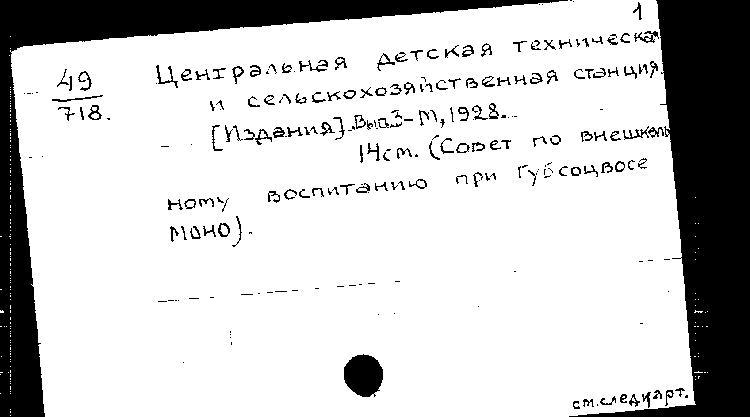 1
49
718.
Центральная детская техническая
и сельскохозяйственная станция.
[Издания]. Вып.3-М, 1928.
14см. (Совет по внешколь
ному воспитанию при Губсоцвосе
МОНО).
см.след.карт.